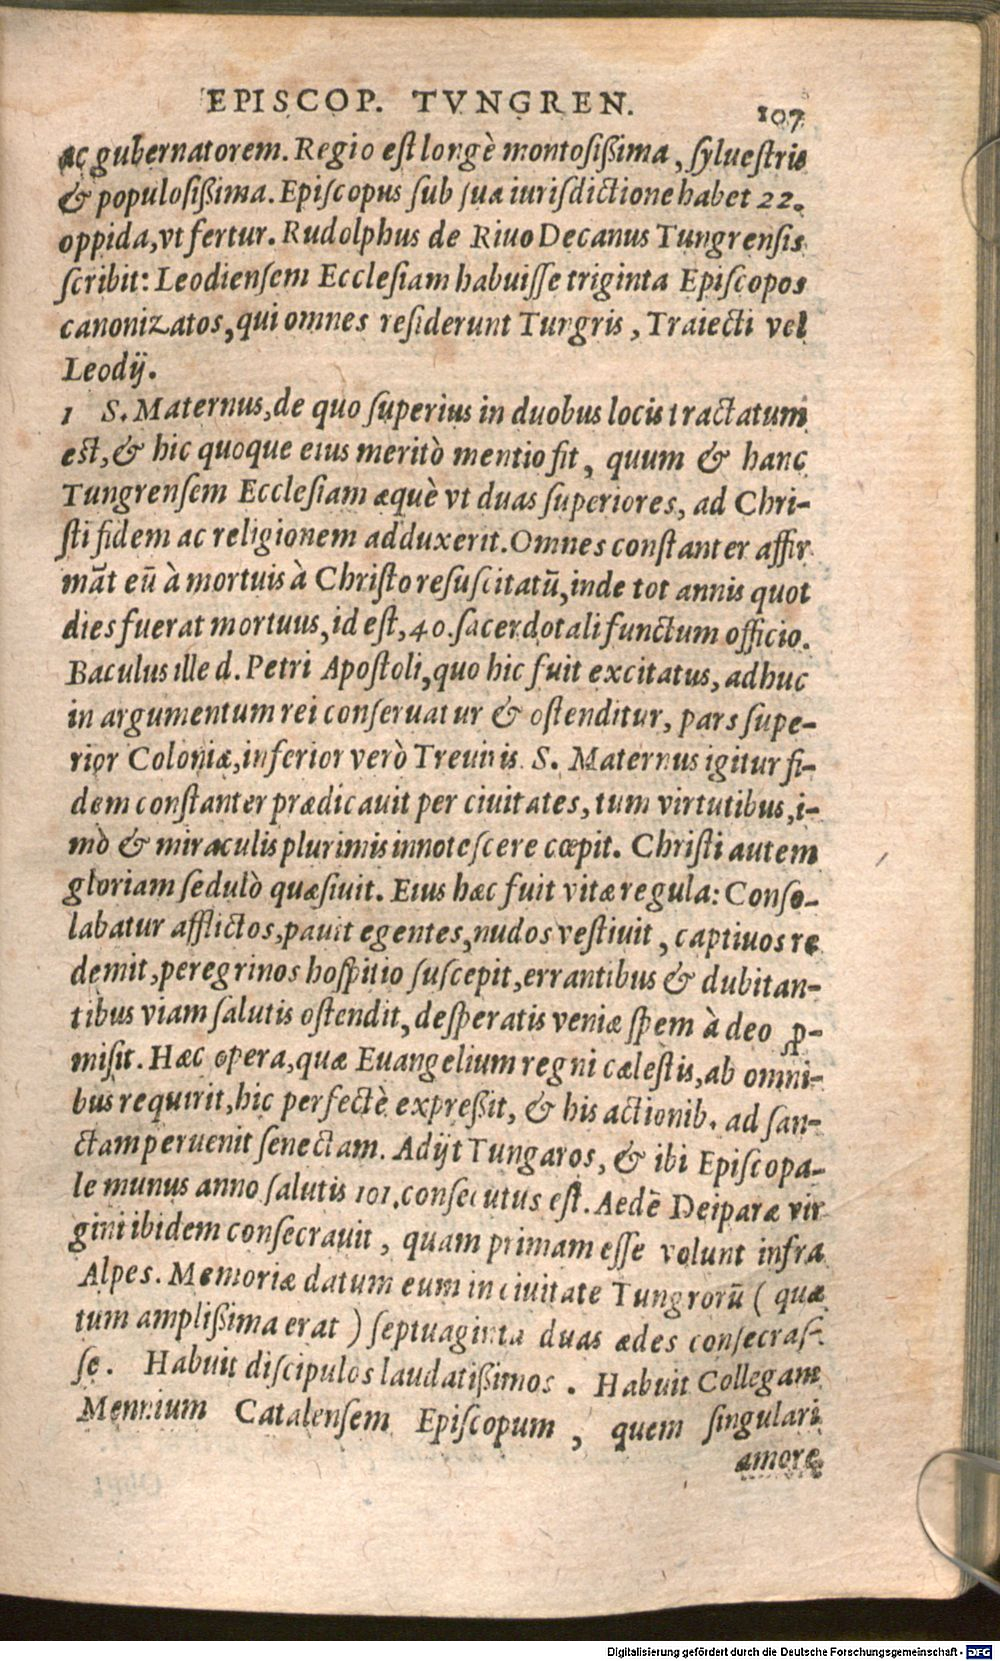 EPISCOP. TVNGREN. 107
ac gubernatorem. Regio est longè montosißima, syluestris
& populosißima. Episcopus sub sua iurisdictione habet 22.
oppida, vt fertur. Rudolphus de Riuo Decanus Tungrensis
scribit: Leodiensem Ecclesiam habuisse triginta Episcopos
canonizatos, qui omnes residerunt Tungris, Traiecti vel
Leodij.
1 S. Maternus, de quo superius in duobus locis tractatum
est, & hic quoque eius meritò mentio fit, quum & hanc
Tungrensem Ecclesiam æquè vt duas superiores, ad Chri-
sti fidem ac religionem adduxerit. Omnes constanter affir
mãt eũ à mortuis à Christo resuscitatũ, inde tot annis quot
dies fuerat mortuus, id est, 40. sacerdotali functum officio.
Baculus ille d. Petri Apostoli, quo hic fuit excitatus, adhuc
in argumentum rei conseruatur & ostenditur, pars supe-
rior Coloniæ, inferior verò Treuiris. S. Maternus igitur fi-
dem constanter prædicauit per ciuitates, tum virtutibus, i-
mò & miraculis plurimis innotescere cœpit. Christi autem
gloriam sedulò quæsiuit. Eius hæc fuit vitæ regula: Conso-
labatur afflictos, pauit egentes, nudos vestiuit, captiuos re
demit, peregrinos hospitio suscepit, errantibus & dubitan-
tibus viam salutis ostendit, desperatis veniæ spem à deo ꝓ-
misit. Hæc opera, quæ Euangelium regni cælestis, ab omni-
bus requirit, hic perfectè expreßit, & his actionib. ad san-
ctam peruenit senectam. Adijt Tungaros, & ibi Episcopa-
le munus anno salutis 101. consecutus est. Aedē Deiparæ vir
gini ibidem consecrauit, quam primam esse volunt infra
Alpes. Memoriæ datum eum in ciuitate Tungrorũ (quæ
tum amplißima erat) septuaginta duas ædes consecras-
se. Habuit discipulos laudatißimos. Habuit Collegam
Mennium Catalensem Episcopum, quem singulari
amore
Digitalisierung gefördert durch die Deutsche Forschungsgemeinschaft - DFG